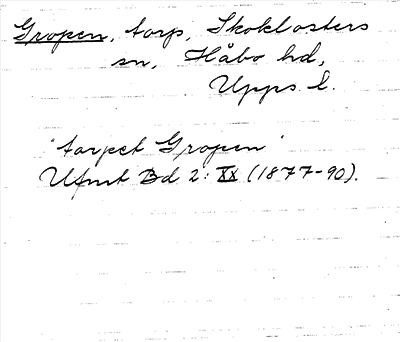 Gropen, torp, Skoklosters
sn, Håbo hd,
Upps. l.
"torpet Gropen"
Ufmt Bd 2: XX (1877-90).